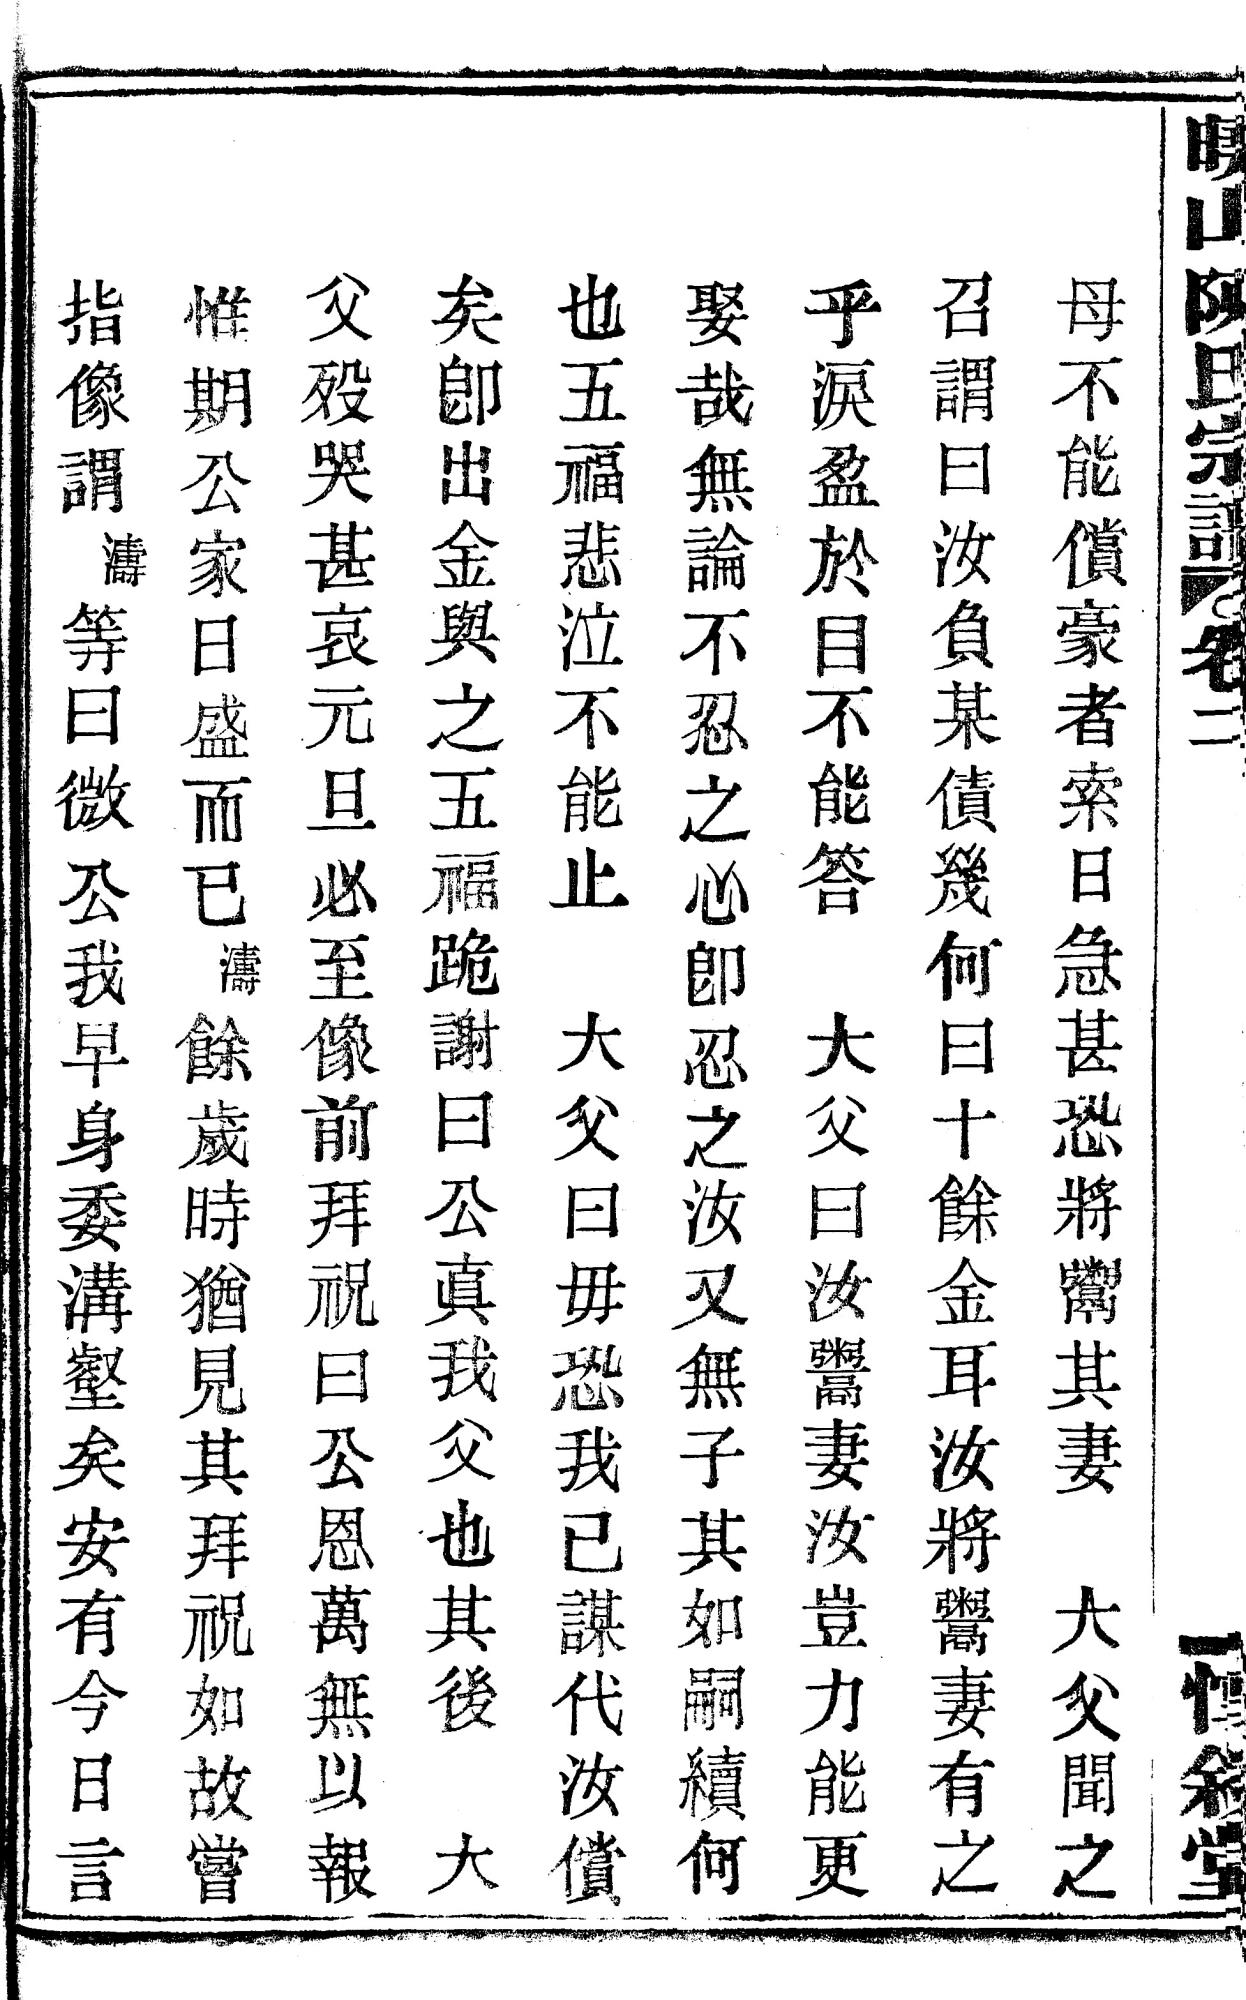 山陳氏宗譜 卷二 堂
母不能償豪者索日急甚恐將鬻其妻　大父聞之
召謂曰汝負某債幾何曰十餘金耳汝將鬻妻有之
乎淚盈於目不能答　大父曰汝鬻妻汝豈力能更
娶哉無論不忍之心卽忍之汝又無子其如嗣續何
也五福悲泣不能止　大父曰毋恐我已謀代汝償
矣卽出金與之五福跪謝曰公真我父也其後　大
父歿哭甚哀元旦必至像前拜祝曰公恩萬無以報
惟期公家日盛而已濤餘歲時猶見其拜祝如故嘗
指像謂濤等曰微公我早身委溝壑矣安有今日言